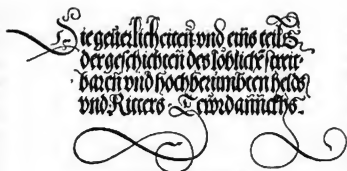 Die geuerlicheiten vnd eins teils
der geschichten des loblichen streit-
baren vnd hochberümbten helds
vnd Ritters Tewrdannckhs.